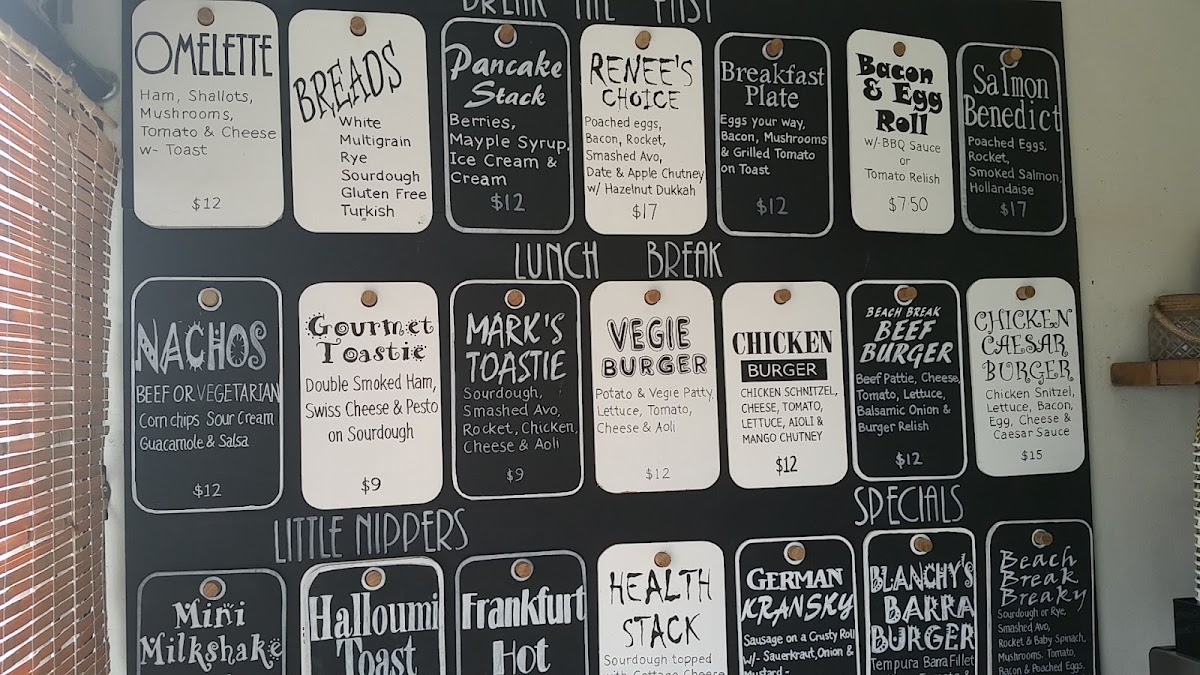 BREAK THE FAST
OMELETTE
Ham, Shallots,
Mushrooms,
Tomato & Cheese
w- Toast
$12
BREADS
White
Multigrain
Rye
Sourdough
Gluten Free
Turkish
Pancake
Stack
Berries,
Mayple Syrup,
Ice Cream &
Cream
$12
RENEE'S
CHOICE
Poached eggs,
Bacon, Rocket,
Smashed Avo,
Date & Apple Chutney
w/ Hazelnut Dukkah
$17
Breakfast
Plate
Eggs your way,
Bacon, Mushrooms
& Grilled Tomato
on Toast
$12
Bacon
& Egg
Roll
w/-BBQ Sauce
or
Tomato Relish
$7.50
Salmon
Benedict
Poached Eggs,
Rocket,
Smoked Salmon,
Hollandaise
$17
LUNCH BREAK
NACHOS
BEEF OR VEGETARIAN
Corn chips Sour Cream
Guacamole & Salsa
$12
Gourmet
Toastie
Double Smoked Ham,
Swiss Cheese & Pesto
on Sourdough
$9
MARK'S
TOASTIE
Sourdough,
Smashed Avo,
Rocket, Chicken,
Cheese & Aoli
$9
VEGIE
BURGER
Potato & Vegie Patty,
Lettuce, Tomato,
Cheese & Aoli
$12
CHICKEN
BURGER
CHICKEN SCHNITZEL,
CHEESE, TOMATO,
LETTUCE, AIOLI &
MANGO CHUTNEY
$12
BEACH BREAK
BEEF
BURGER
Beef Pattie, Cheese,
Tomato, Lettuce,
Balsamic Onion &
Burger Relish
$12
CHICKEN
CAESAR
BURGER
Chicken Snitzel,
Lettuce, Bacon,
Egg, Cheese &
Caesar Sauce
$15
LITTLE NIPPERS
SPECIALS
Mini
Milkshake
Halloumi
Toast
Frankfurt
Hot
HEALTH
STACK
Sourdough topped
with Cottage Cheese
GERMAN
KRANSKY
Sausage on a Crusty Roll
w/- Sauerkraut, Onion &
Mustard -
BLANCHY'S
BARRA
BURGER
Tempura Barra Fillet
Beach
Break
Breaky
Sourdough or Rye,
Smashed Avo,
Rocket & Baby Spinach,
Mushrooms, Tomato,
Bacon & Poached Eggs.